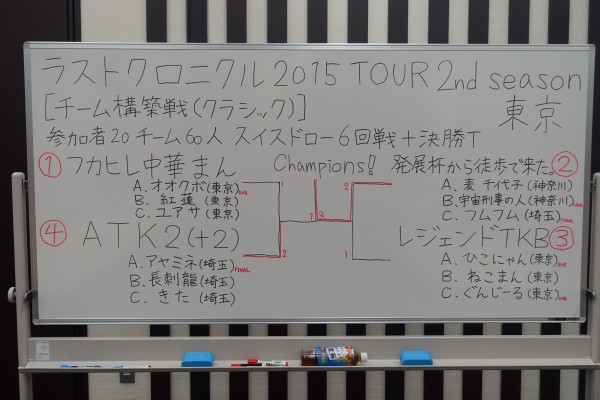 ラストクロニクル2015 TOUR 2nd season
[チーム構築戦(クラシック)] 東京
参加者20チーム60人 スイスドロー6回戦+決勝T
① フカヒレ中華まん
A. オオクボ(東京)
B. 紅蓮(東京)
C. ユアサ(東京)
④ ATK2(+2)
A. アヤミネ(埼玉)FINAL
B. 長刺龍(埼玉)
C. きた(埼玉)
1
2
1
2
2
1
Champions!! 発展杯から徒歩で来た。②
A. 麦 千代子(神奈川)
B. 宇宙刑事の人(神奈川)
C. フムフム(埼玉)
レジェンドTKB ③
A. ひこにゃん(東京)
B. ねこまん(東京)
C. ぐんじーる(東京)